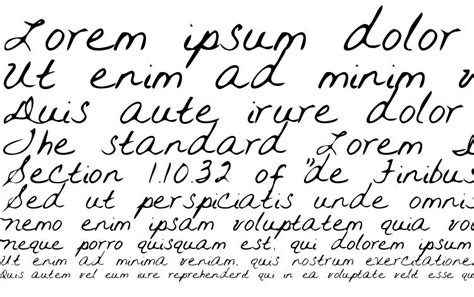 Lorem ipsum dolor
Ut enim ad minim v
Duis aute irure dolor
The standard Lorem
Section 1.10.32 of "de Finibus
Sed ut perspiciatis unde omnis
Nemo enim ipsam voluptatem quia vo
Neque porro quisquam est, qui dolorem ipsum
Ut enim ad minima veniam, quis nostrum exercitatione
Quis autem vel eum iure reprehenderit qui in ea voluptate velit esse qua